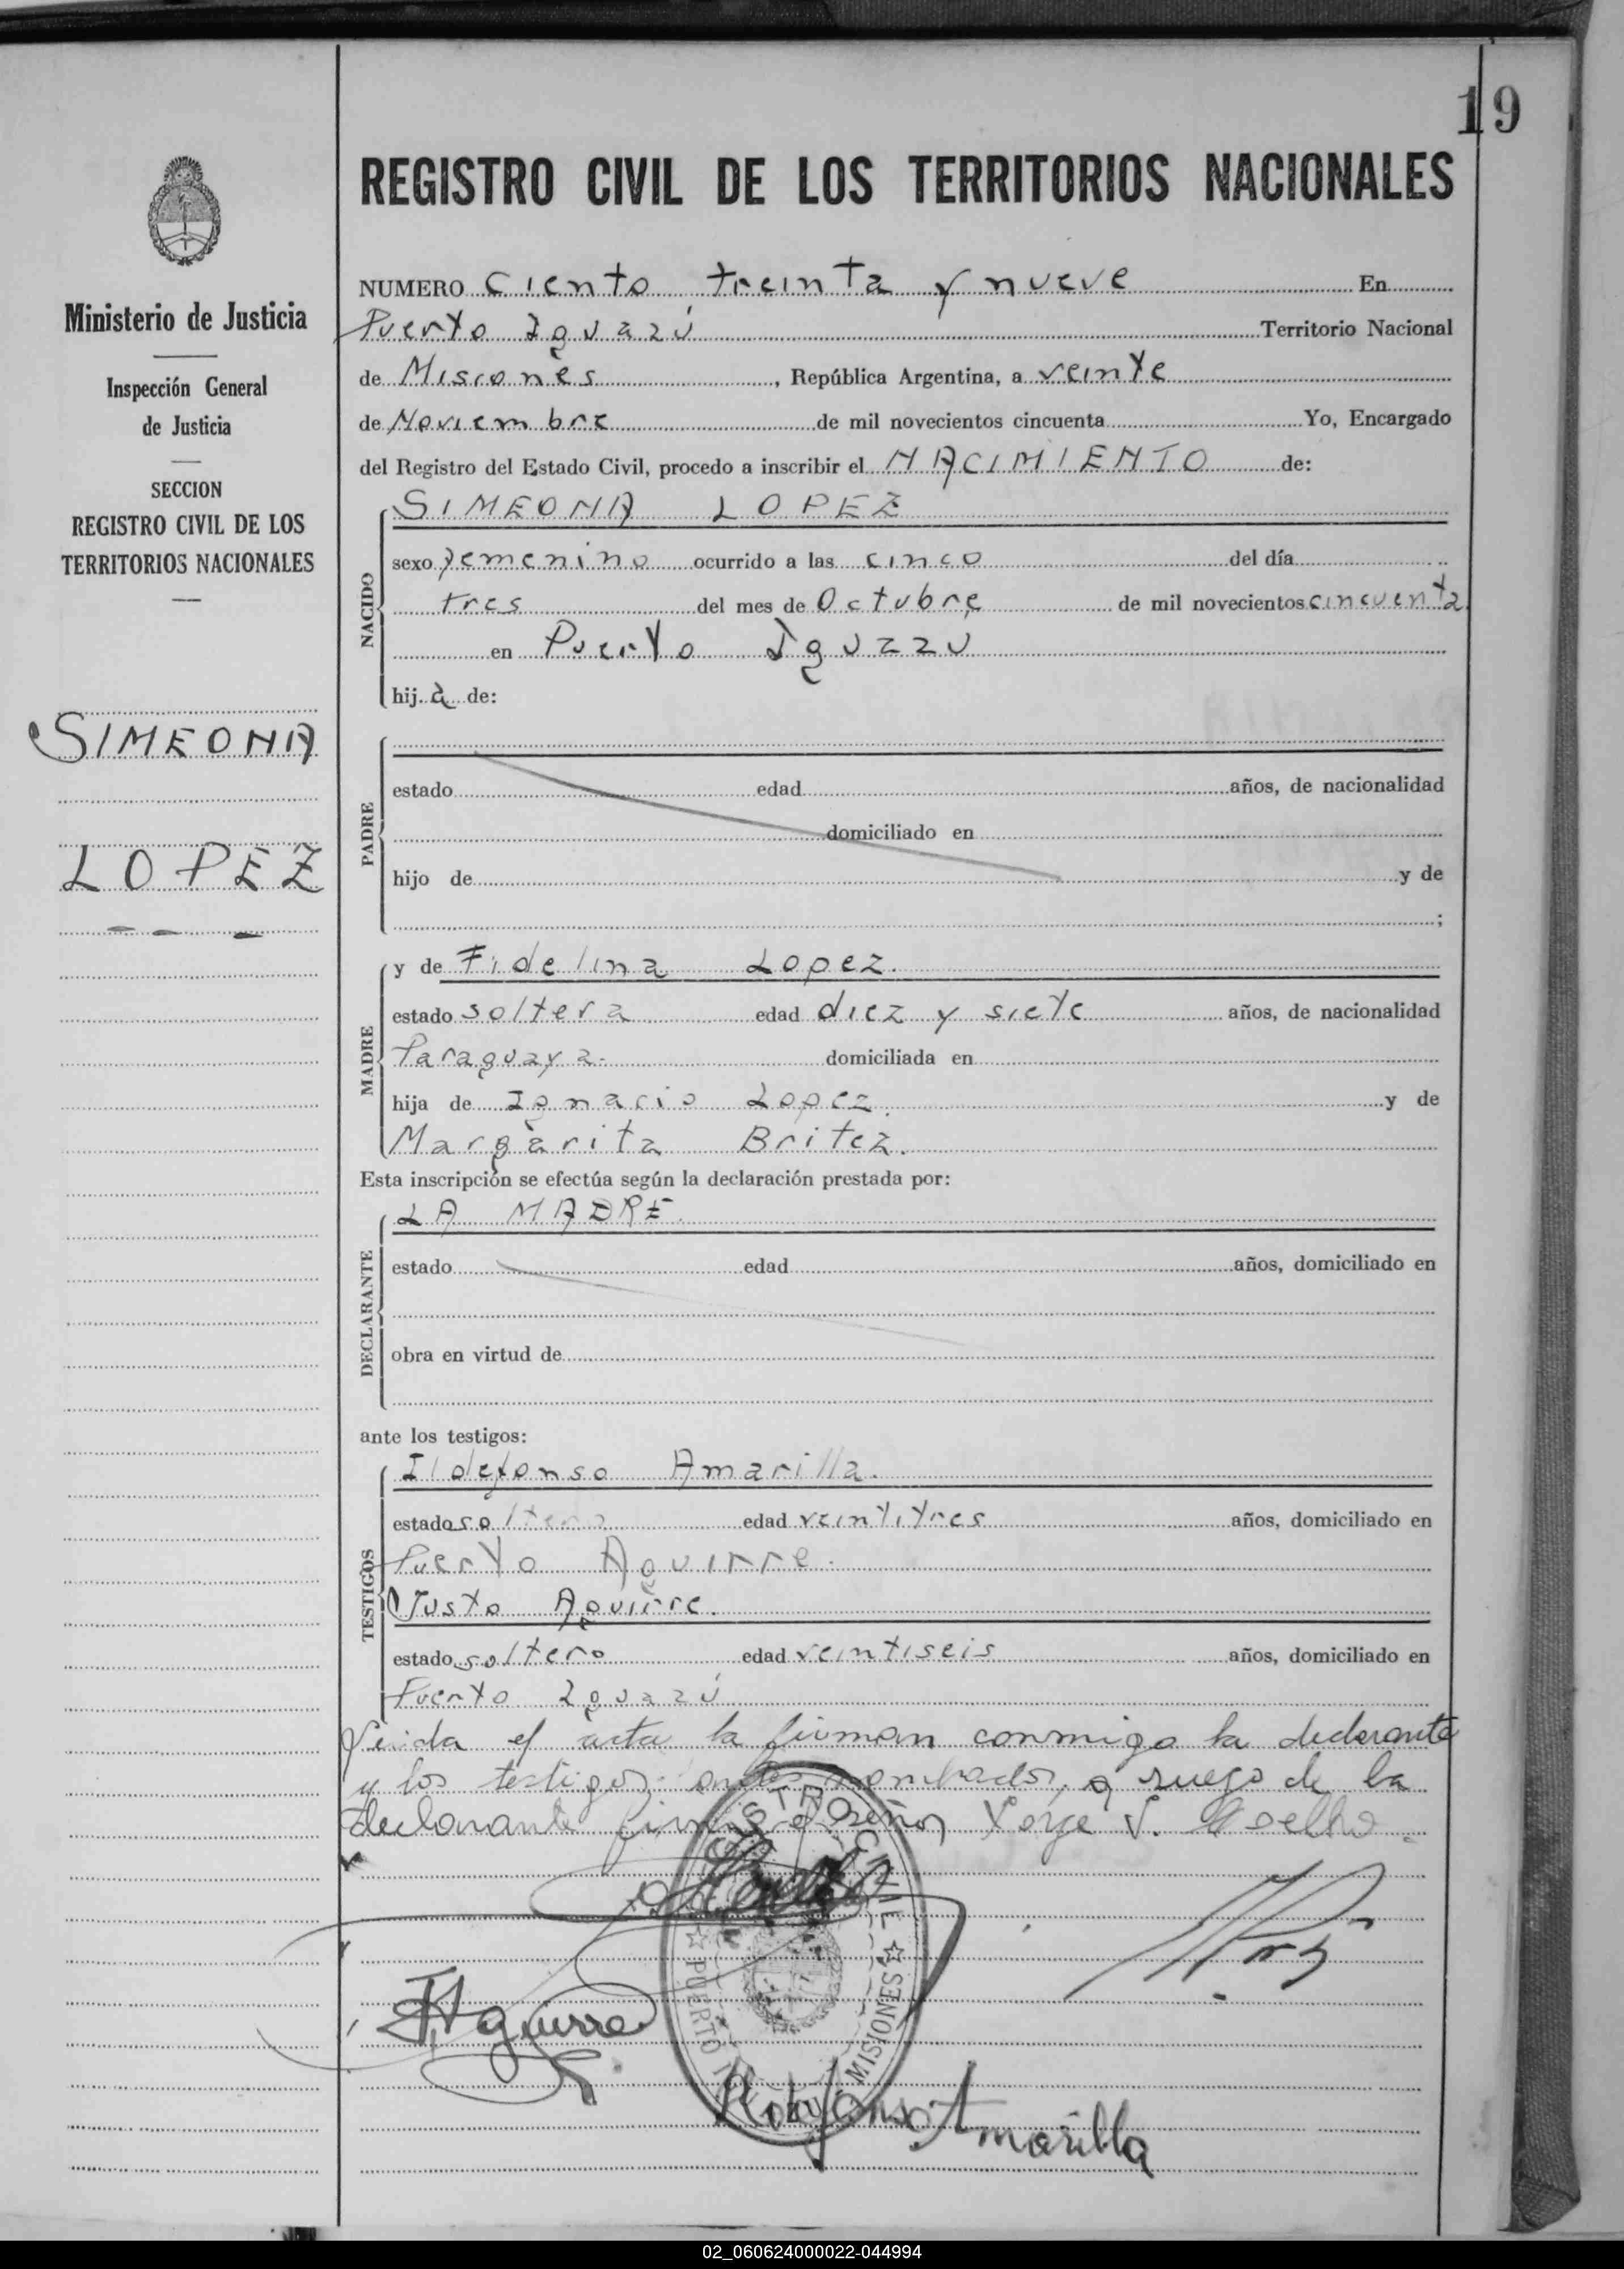 19
REGISTRO CIVIL DE LOS TERRITORIOS NACIONALES
Ministerio de Justicia
Inspección General
de Justicia
SECCION
REGISTRO CIVIL DE LOS
TERRITORIOS NACIONALES
SIMEONA
LOPEZ
NUMERO Ciento treinta y nueve En
Puerto Iguazú Territorio Nacional
de Misiones, República Argentina, a veinte
de Noviembre de mil novecientos cincuenta Yo, Encargado
del Registro del Estado Civil, procedo a inscribir el NACIMIENTO de:
NACIDO
SIMEONA LOPEZ
sexo femenino ocurrido a las cinco del día
tres del mes de Octubre de mil novecientos cincuenta
en Puerto Iguazu
hija de:
PADRE
estado edad años, de nacionalidad
domiciliado en
hijo de y de
;
MADRE
y de Fidelina Lopez.
estado soltera edad diez y siete años, de nacionalidad
Paraguaya. domiciliada en
hija de Ignacio Lopez. y de
Margarita Britez.
Esta inscripción se efectúa según la declaración prestada por:
DECLARANTE
LA MADRE
estado edad años, domiciliado en
obra en virtud de
ante los testigos:
TESTIGOS
Ildefonso Amarilla.
estado soltero edad veintitres años, domiciliado en
Puerto Aguirre.
Justo Aguirre.
estado soltero edad veintiseis años, domiciliado en
Puerto Iguazú
Leida el acta la firman conmigo la declarante
y los testigos antes nombrados, a ruego de la
declarante firma el Señor Jorge V. Coelho.
REGISTRO CIVIL
PUERTO
MISIONES
Aguirre
Ildefonso Amarilla
02_060624000022-044994